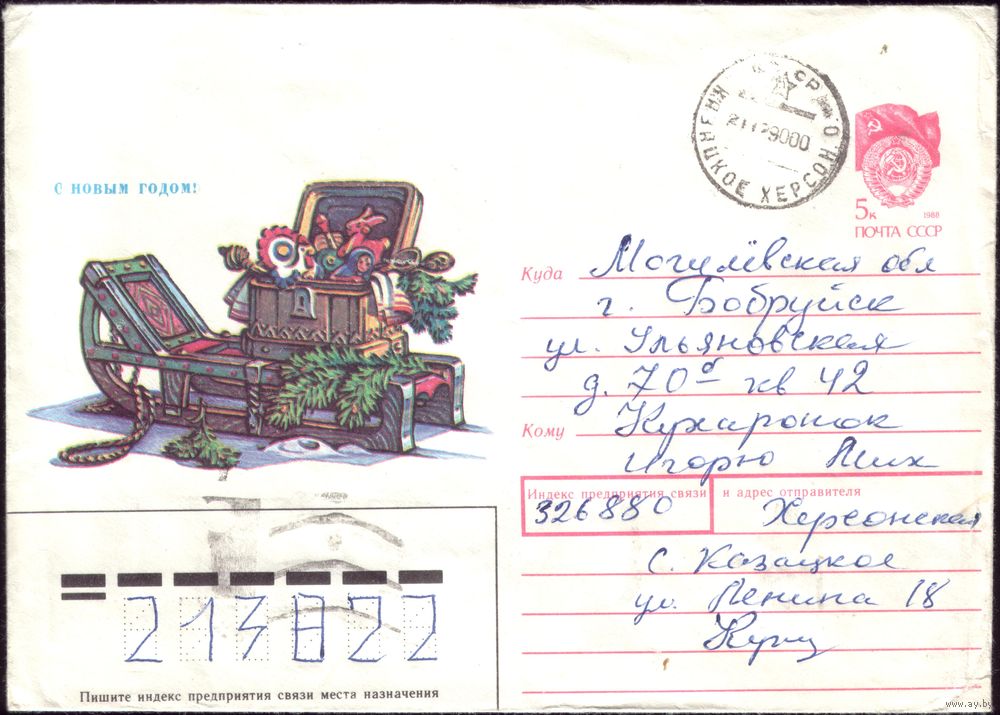 С НОВЫМ ГОДОМ!
КАЗАЦКОЕ ХЕРСОН.О
5к
1988
ПОЧТА СССР
Куда Могилёвская обл
г. Бобруйск
ул. Ульяновская
д. 70б кв 42
Кому
Игорю Мих
Индекс предприятия связи и адрес отправителя
326880 Херсонская
с. Казацкое
ул. Ленина 18
213822
Пишите индекс предприятия связи места назначения
www.ay.by